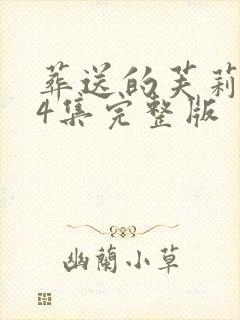 葬送的芙莉
4集完整版
幽蘭小草